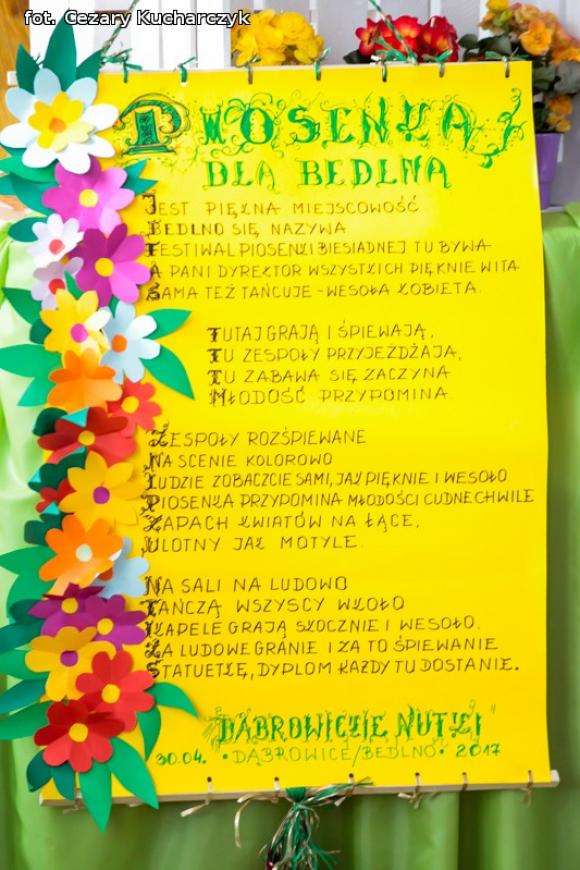 fot. Cezary Kucharczyk
PIOSENKA
DLA BEDLNA
JEST PIĘKNA MIEJSCOWOŚĆ
BEDLNO SIĘ NAZYWA
FESTIWAL PIOSENKI BIESIADNEJ TU BYWA
A PANI DYREKTOR WSZYSTKICH PIĘKNIE WITA
SAMA TEŻ TAŃCUJE - WESOŁA KOBIETA.
TUTAJ GRAJĄ I ŚPIEWAJĄ,
TU ZESPOŁY PRZYJEŻDŻAJĄ,
TU ZABAWA SIĘ ZACZYNA
MŁODOŚĆ PRZYPOMINA.
ZESPOŁY ROZŚPIEWANE
NA SCENIE KOLOROWO
LUDZIE ZOBACZCIE SAMI, JAK PIĘKNIE I WESOŁO.
PIOSENKA PRZYPOMINA MŁODOŚCI CUDNE CHWILE
ZAPACH KWIATÓW NA ŁĄCE,
ULOTNY JAK MOTYLE.
NA SALI NA LUDOWO
TAŃCZĄ WSZYSCY WKOŁO
KAPELE GRAJĄ SKOCZNIE I WESOŁO.
ZA LUDOWE GRANIE I ZA TO ŚPIEWANIE
STATUETKĘ, DYPLOM KAŻDY TU DOSTANIE.
"DĄBROWICKIE NUTKI"
30.04. • DĄBROWICE/BEDLNO • 2017